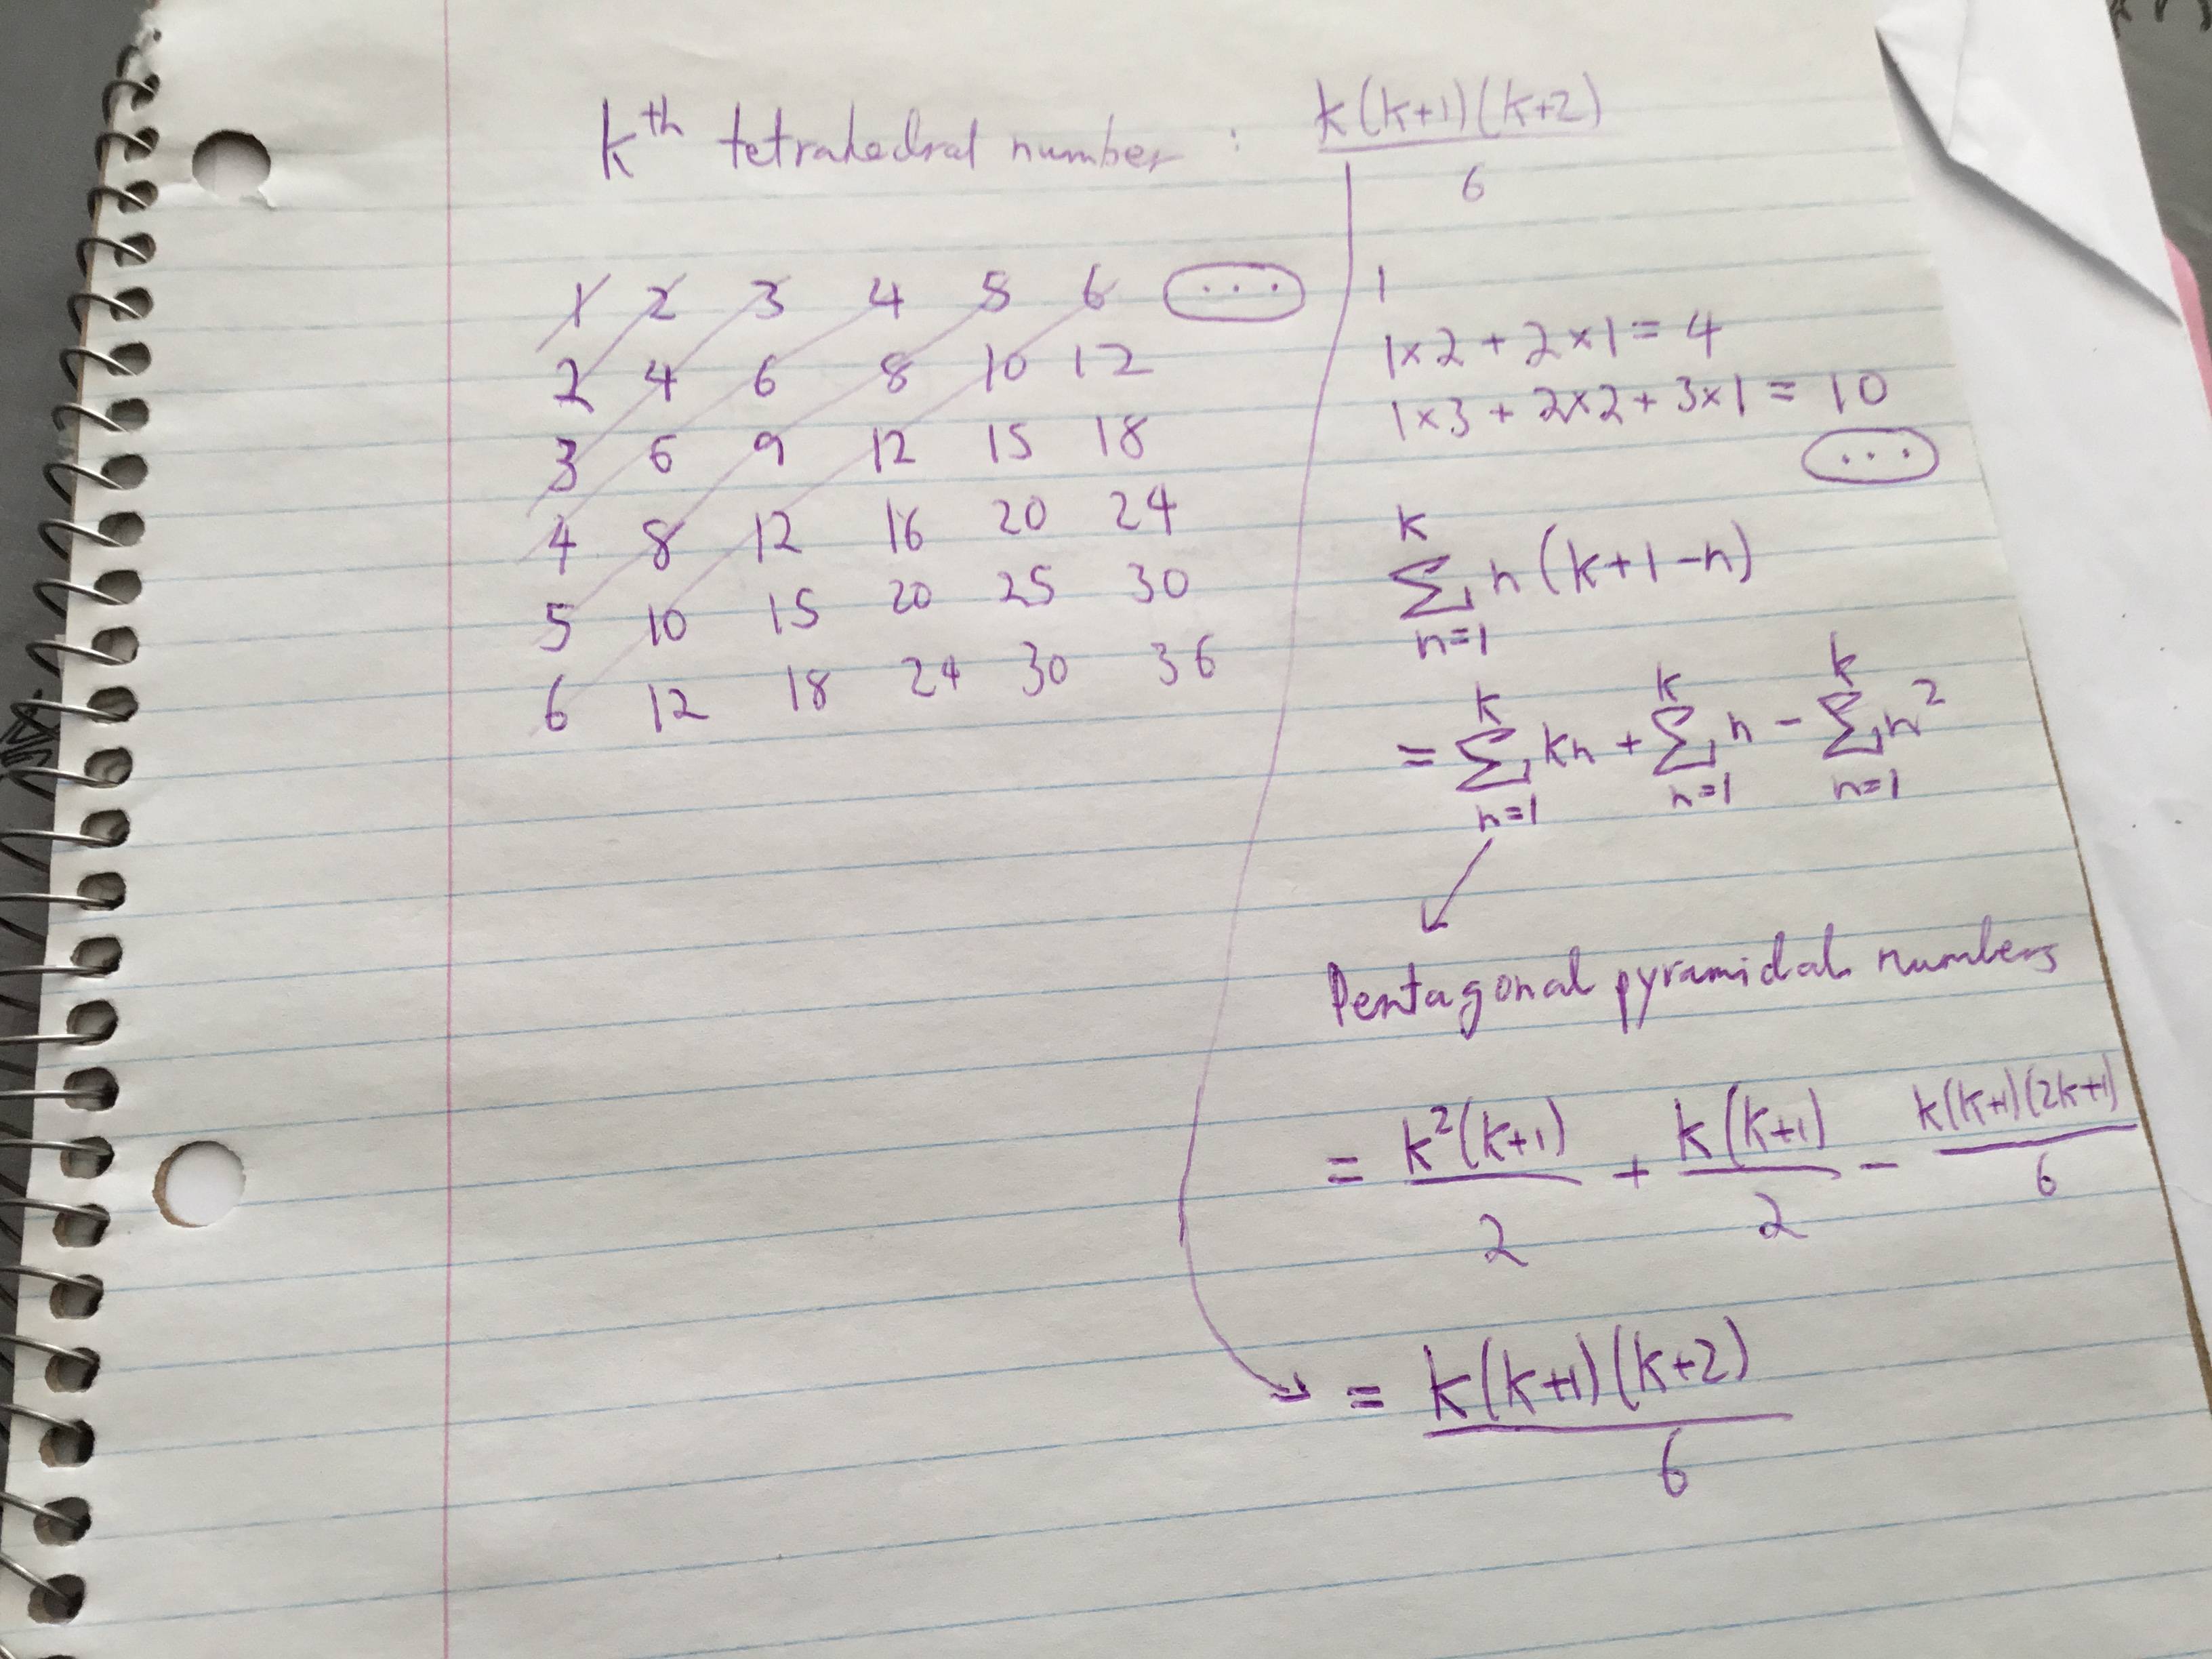 kth tetrahedral number : k(k+1)(k+2)
6
1 2 3 4 5 6 ...
2 4 6 8 10 12
3 6 9 12 15 18
4 8 12 16 20 24
5 10 15 20 25 30
6 12 18 24 30 36
1
1×2 + 2×1 = 4
1×3 + 2×2 + 3×1 = 10
...
k
Σ n(k+1-n)
n=1
k k k
= Σ kn + Σ n - Σ n²
n=1 n=1 n=1
Pentagonal pyramidal numbers
= k²(k+1) + k(k+1) - k(k+1)(2k+1)
2 2 6
= k(k+1)(k+2)
6